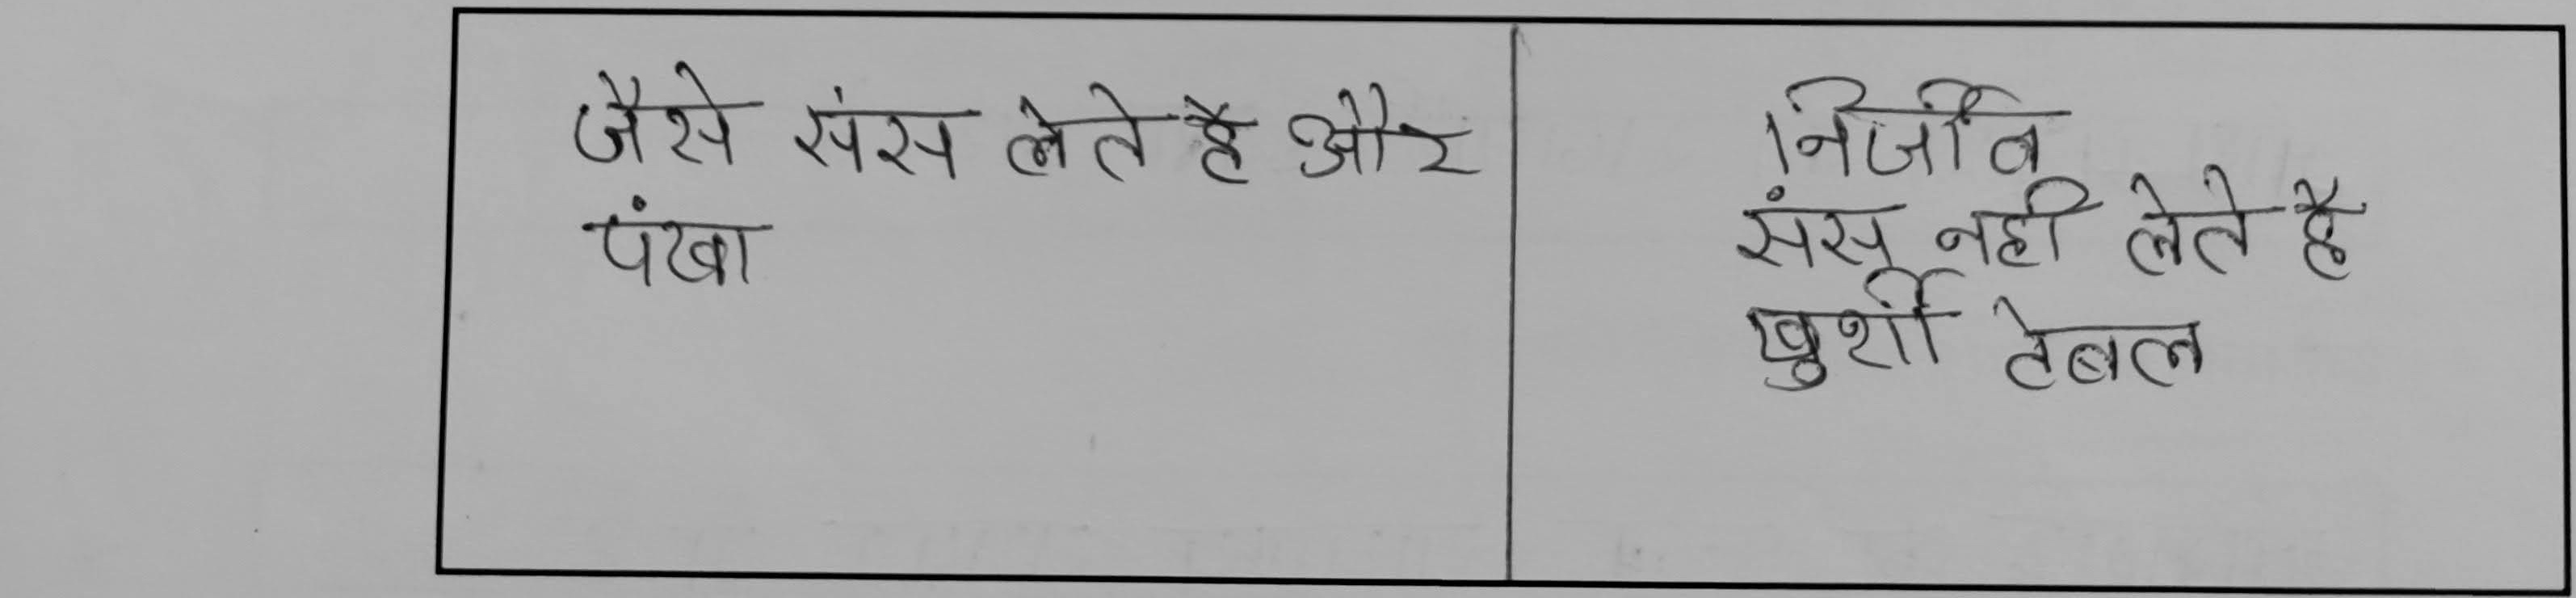 जैसे संस लेते है और
पंखा
निर्जीव
संस नही लेते है
खुर्शी टेबल